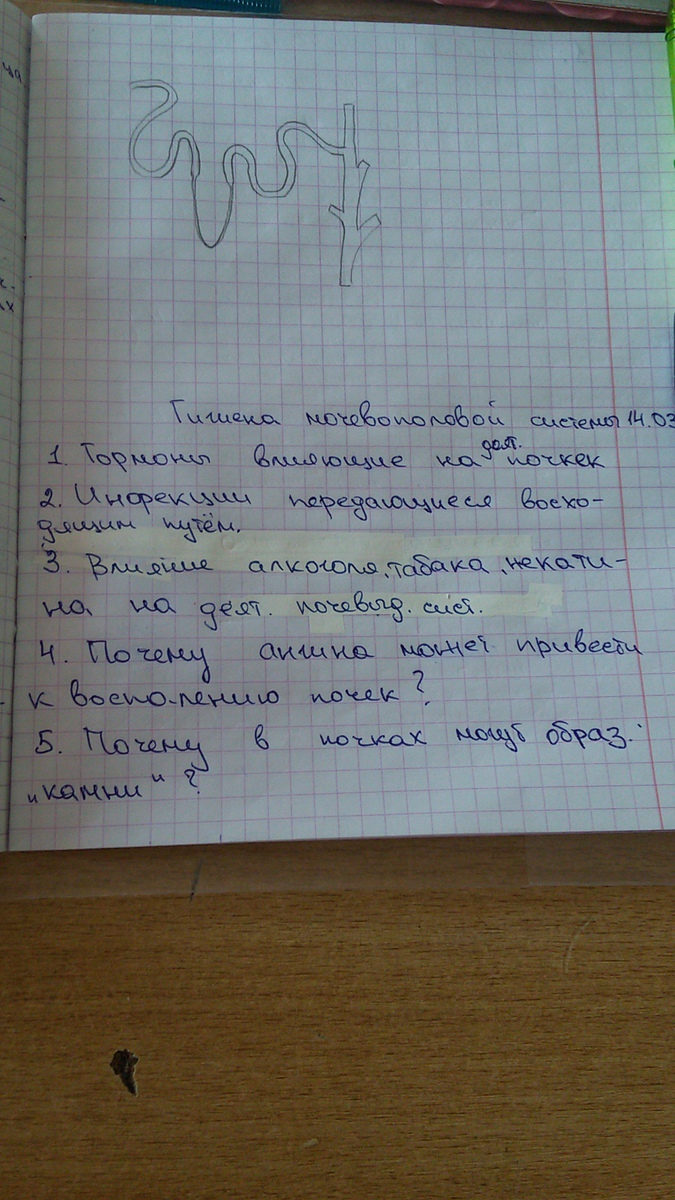 Гигиена мочевополовой системы 14.03
1. Гормоны влияющие на деят. почкек
2. Инфекции передающиеся восхо-
дящим путём.
3. Влияние алкоголя, табака, некати-
на на деят. почевыд. сист.
4. Почему ангина может привести
к воспалению почек?
5. Почему в почках могут образ.
"камни"?